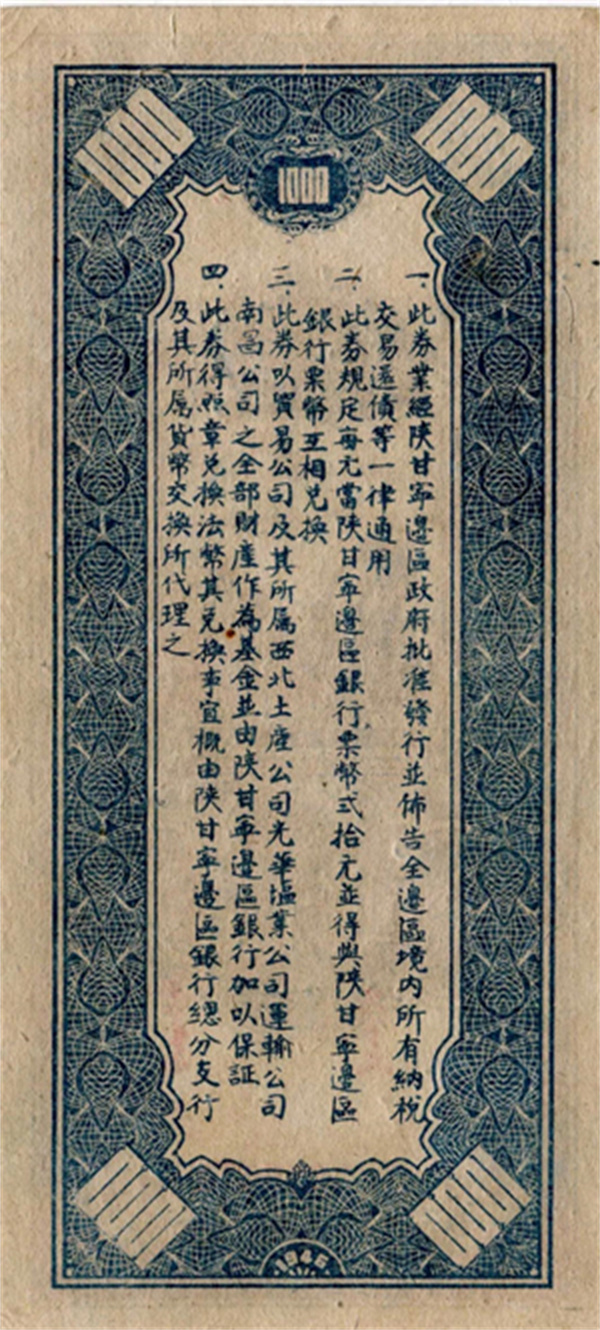 1000
1000
1000
一、此券業經陝甘寧邊區政府批准發行並佈告全邊區境內所有納稅
交易逥債等一律通用
二、此券規定每元當陝甘寧邊區銀行票幣弍拾元並得與陝甘寧邊區
銀行票幣互相兌換
三、此券以貿易公司及其所屬西北土產公司光華塩業公司運輸公司
南昌公司之全部財產作為基金並由陝甘寧邊區銀行加以保証
四、此券得照章兌換法幣其兌換事宜概由陝甘寧邊區銀行總分支行
及其所屬貨幣交換所代理之
1000
1000